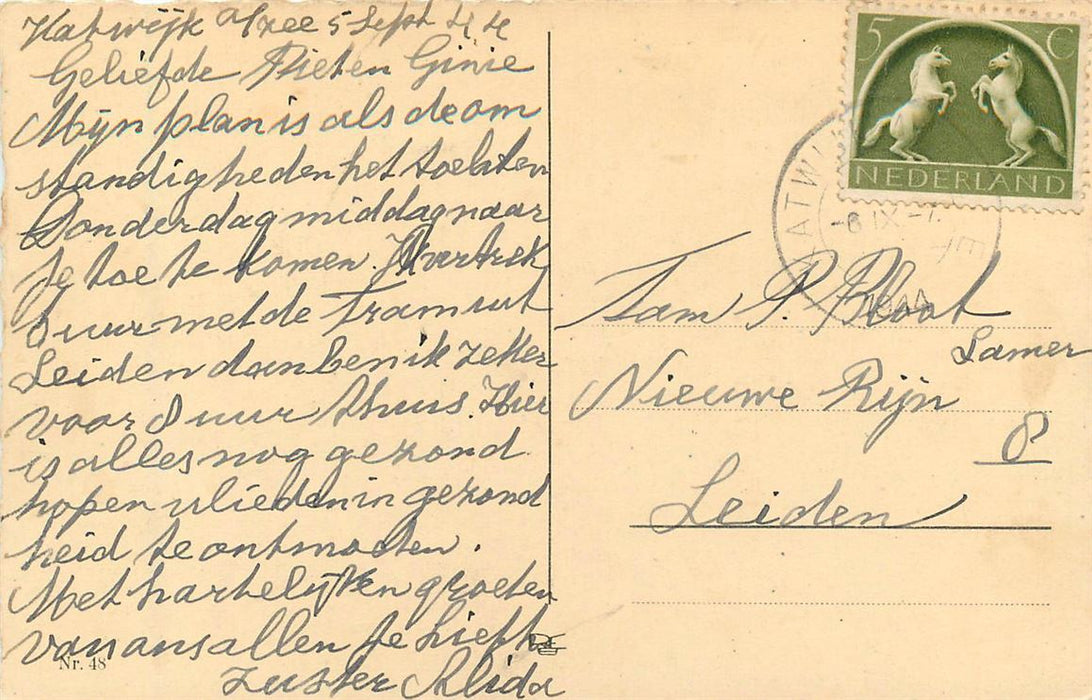 Katwijk a/zee 5 Sept 44
Geliefde Piet en Ginie
Mijn plan is als de om
standigheden het toelaten
Donderdagmiddag naar
je toe te komen. Ik vertrek
8 uur met de tram uit
Leiden dan ben ik zeker
voor 8 uur thuis. Hier
is alles nog gezond
hopen ulieden in gezond
heid te ontmoeten.
Met hartelijken groeten
van ons allen je liefh
Zuster Alida
Nr. 48
5 C
NEDERLAND
KATWIJK
-6 IX
1944
Fam P. Bloot
Lamer
Nieuwe Rijn
8
Leiden